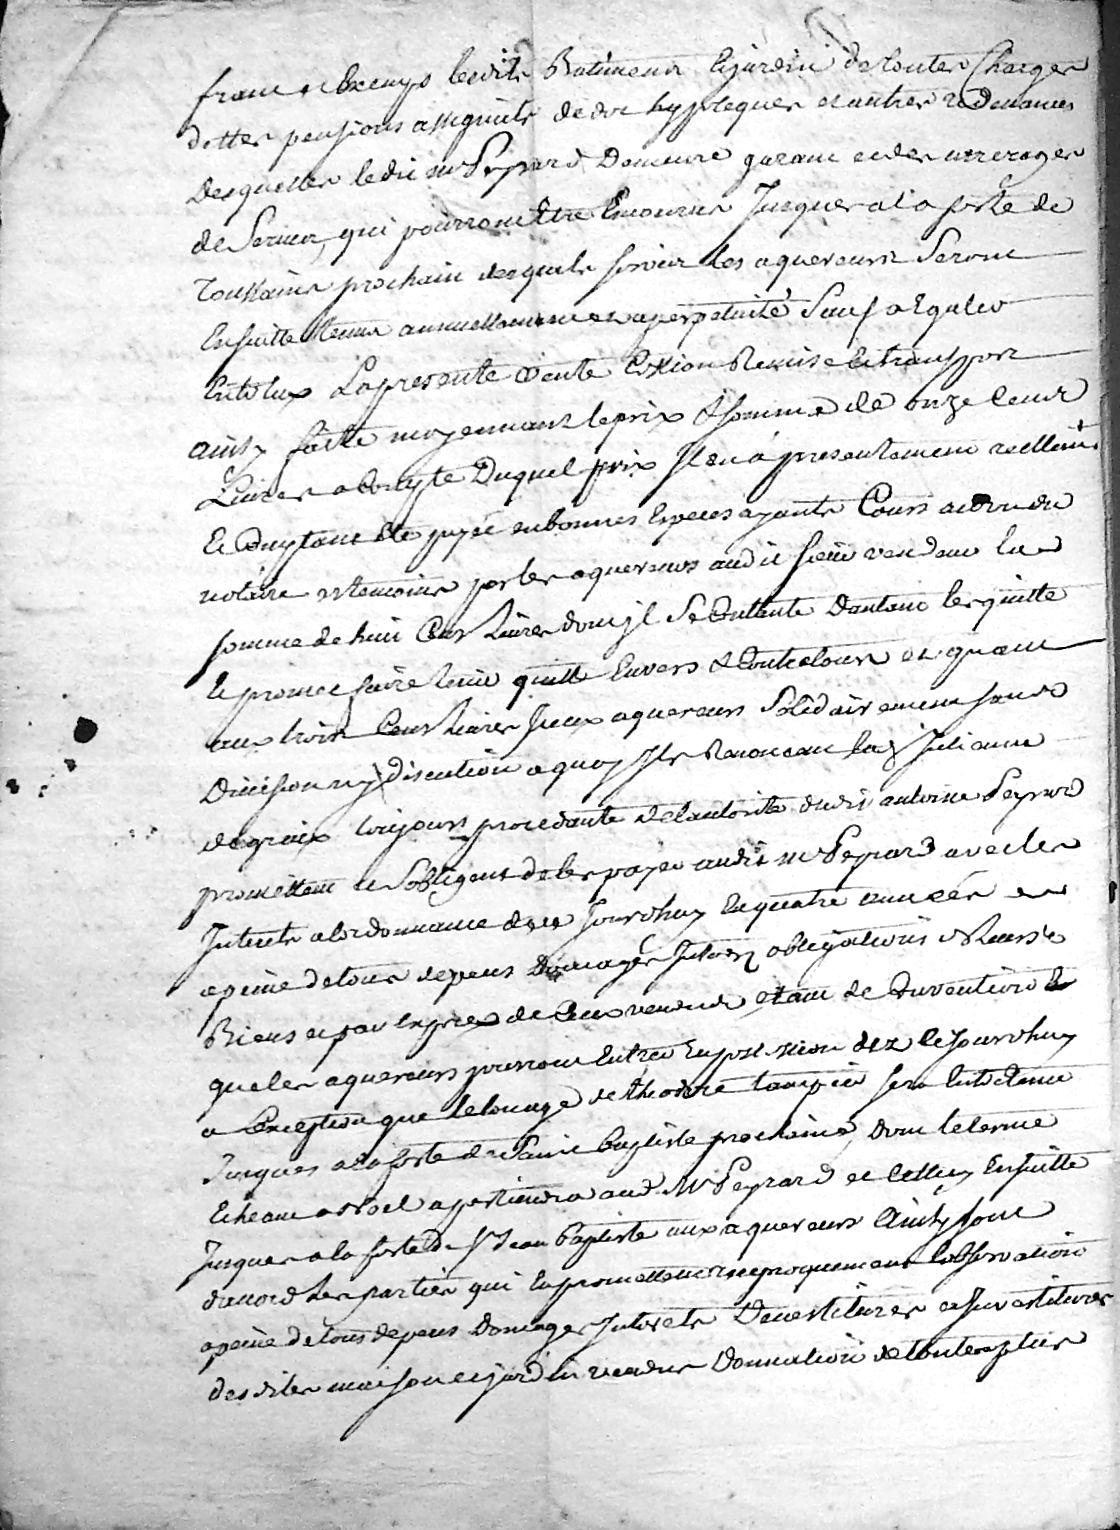 francs et Exemps lesdits Batiments Et jardin de toutes Charges
dettes pensions assignats de dot hyppteques et autres redevances
desquelles ledit mr Peyrard Demeure garant et des arrerages
de Servis, qui pourront Etre Encourus Jusques a la feste de
Toussains prochain desquels servis les aquereurs Seront
Ensuitte tenus annuellement et a perpetuité Sauf a Egaler
Entr'eux La presente vente Cession Remise et transpport
ainsy faitte moyennant le prix & somme de onze Cent
Livres a Compte Duquel prix Il en á presentement reellemt
Et Comptant Eté payée en bonnes Especes ayants Cours au vu du
notaire et temoins par les aquereurs audit sieur vendeur la
somme de huit Cent Livres dont jl Se Contente D'autant les quitte
Et promet faire tenir quitte Envers & Contre tous et quant
aux trois Cent Livres Jceux aquereurs Solidairement sans
Division ny discution a quoy Ils Renoncent lad. Julienne
degraix toujours procedante de l'autorité dudit antoine Peyrard
promettent et S'obligent de les payer audit mr Peyrard avec les
Interets a l'ordonnance de ce Jourd'huy En quatre années
a peine de tous depens Domages Interets obligations
Biens et par Exprés de Ceux vendus, Etant de Convention
que les aquereurs pourront Entrer En possession dez ce Jourd'huy
a Exception que le louage de theodore sera Entretenu
Jusques a la feste de Saint Baptiste prochaine, dont le terme
Echeant a Noel apartiendra aud. Mr Peyrard et Celluy Ensuitte
Jusques a la feste de St Jean Baptiste aux aquereurs Ainsy sont
d'accord Les parties qui En promettent reciproquement L'observation
a peine de tous depens Domages Interets Devestitures et Investitures
desdites maison et jardin vendus Donnation de toutes plus